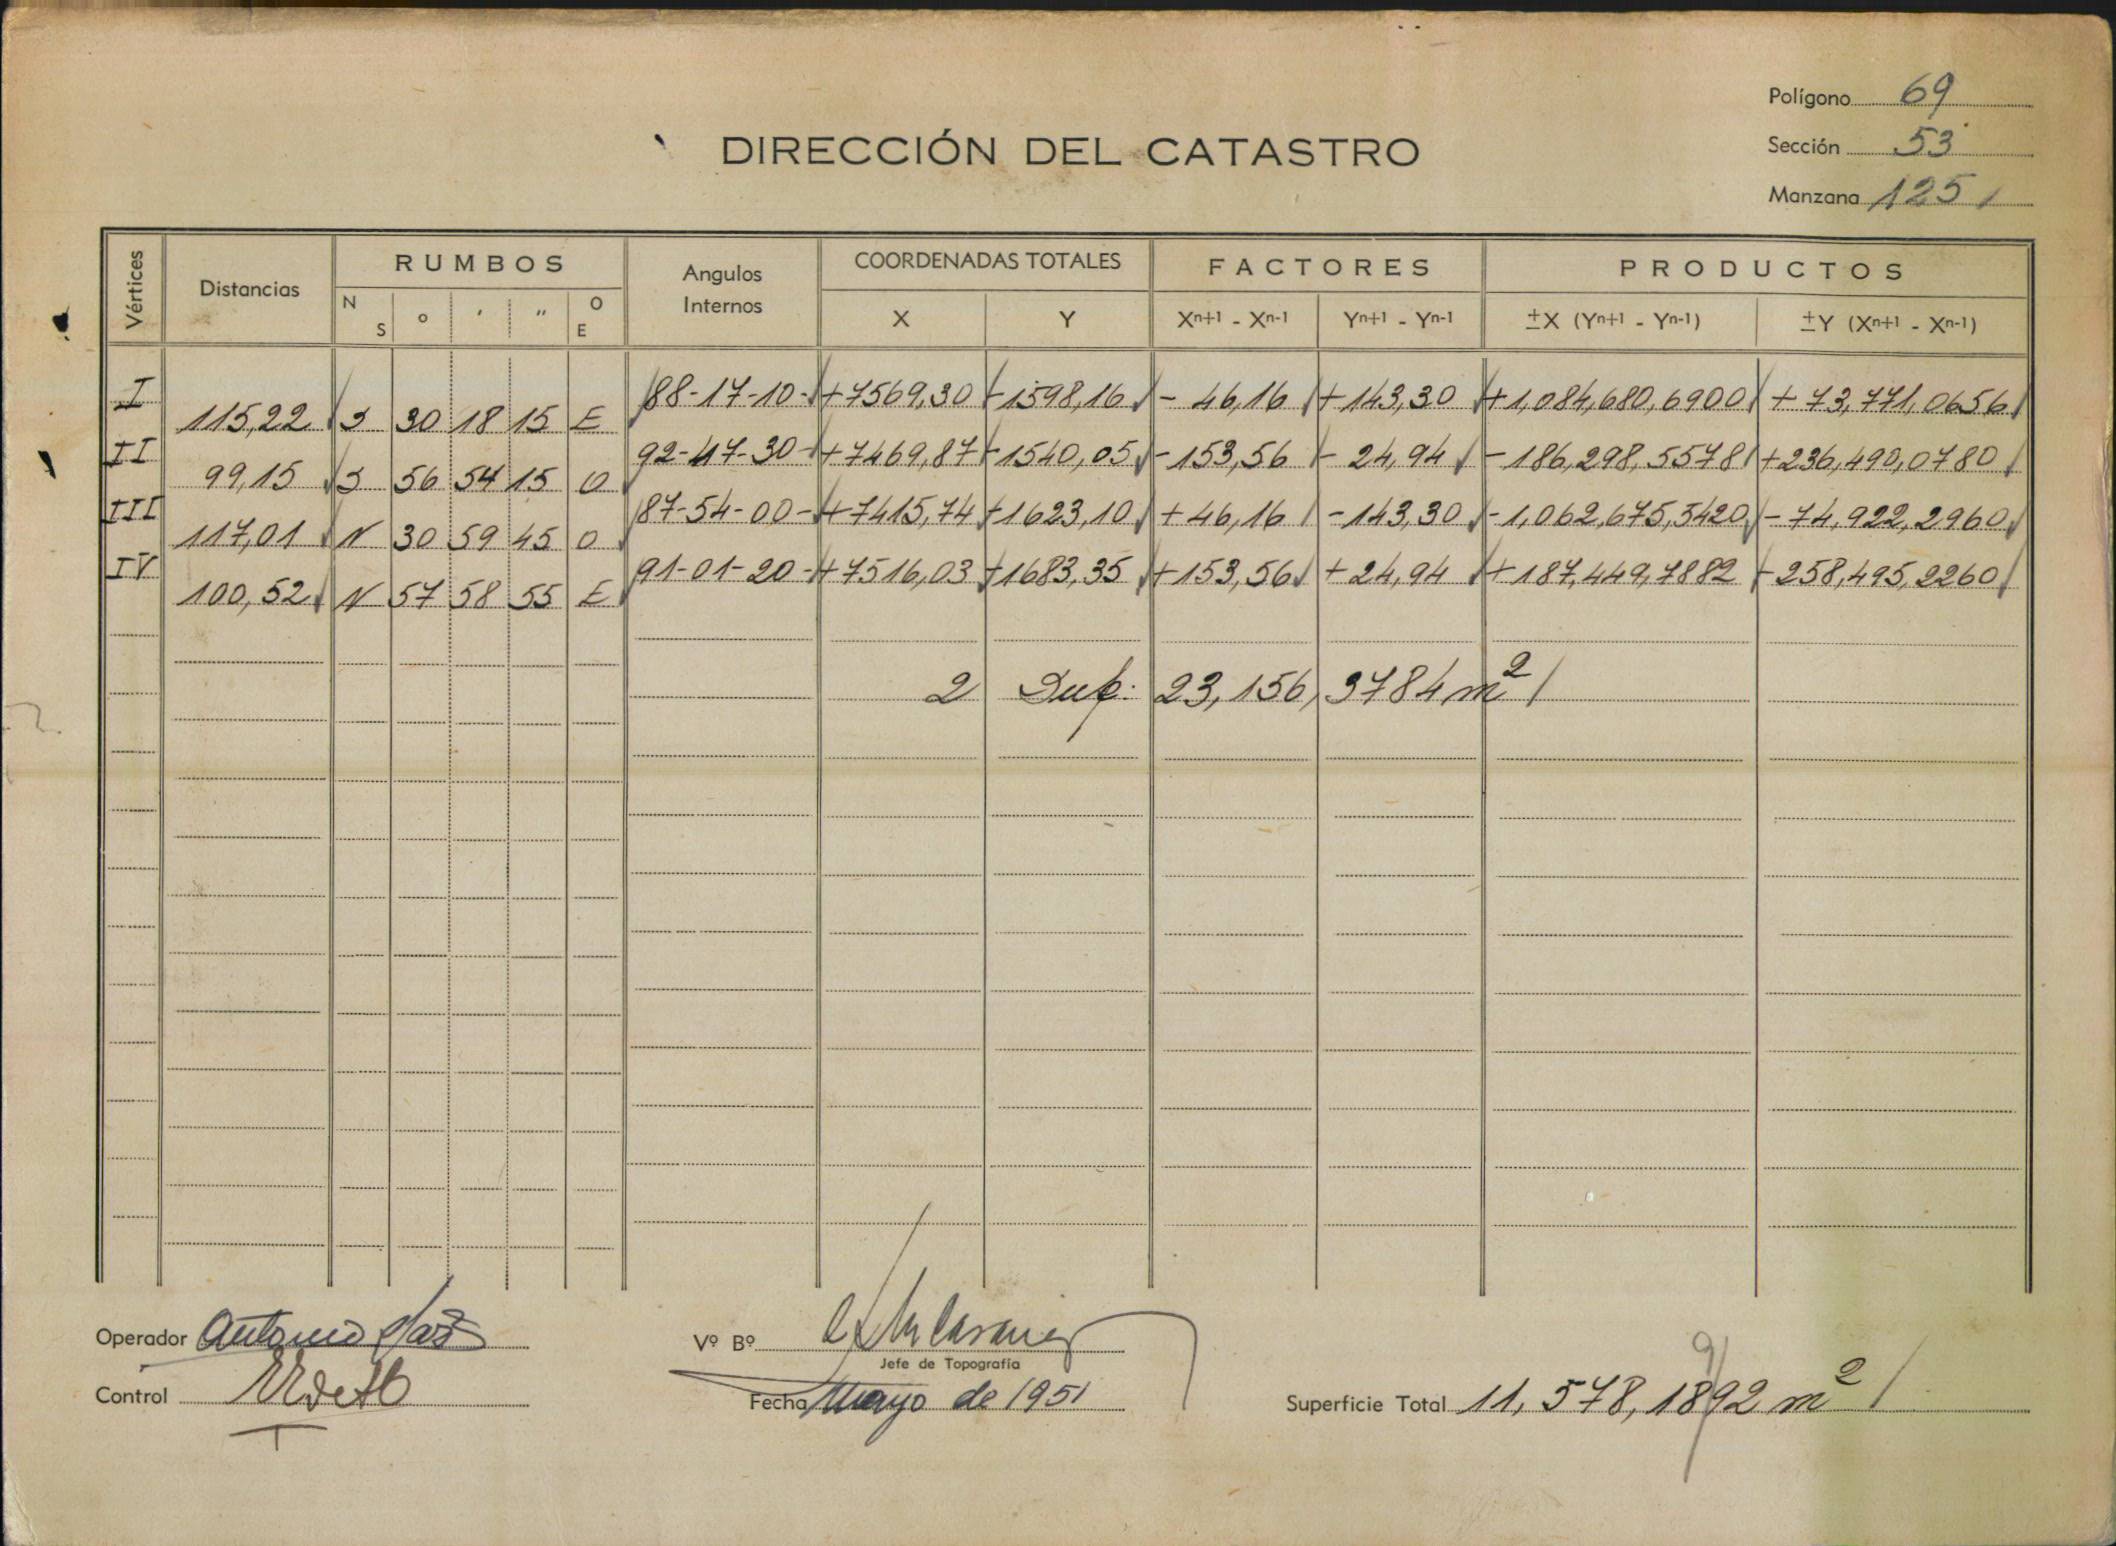 Polígono 69
Sección 53
Manzana 125
DIRECCIÓN DEL CATASTRO
Vértices Distancias RUMBOS Angulos Internos COORDENADAS TOTALES FACTORES PRODUCTOS
N S o ' " O E X Y Xn+1 - Xn-1 Yn+1 - Yn-1 ±X (Yn+1 - Yn-1) ±Y (Xn+1 - Xn-1)
I 88-17-10- +7569,30 -1598,16 - 46,16 +143,30 +1,084,680,6900 + 73,771,0656
115,22 S 30 18 15 E
II 92-47-30- +7469,87 -1540,05 -153,56 - 24,94 -186,298,5578 +236,490,0780
99,15 S 56 54 15 O
III 87-54-00- +7415,74 -1623,10 + 46,16 -143,30 -1,062,675,5420 - 74,922,2960
117,01 N 30 59 45 O
IV 91-01-20- +7516,03 -1683,35 +153,56 + 24,94 +187,449,7882 -258,495,2260
100,52 N 57 58 55 E
2 Sup. 23,156,3784 m2
Operador Antonio
Vº Bº
Jefe de Topografía
Control
Fecha Mayo de 1951
Superficie Total 11,578,1892 m2
9